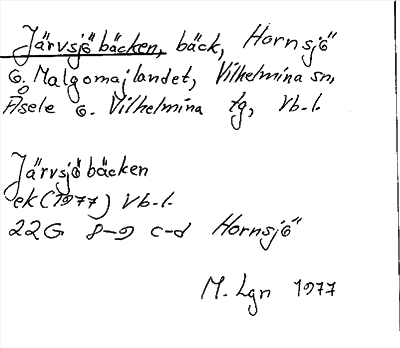 Järvsjöbäcken, bäck, Hornsjö
o. Malgomajlandet, Vilhelmina sn,
Åsele o. Vilhelmina tg, Vb.l.
Järvsjöbäcken
ek (1977) Vb.l.
22G 8-9 c-d Hornsjö
M. Lgn 1977